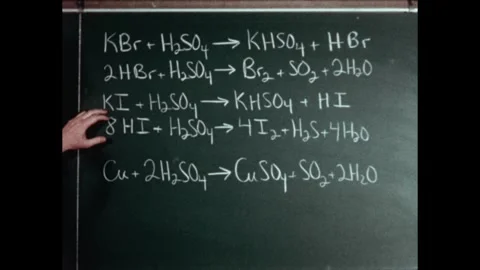 KBr + H₂SO₄ → KHSO₄ + HBr
2HBr + H₂SO₄ → Br₂ + SO₂ + 2H₂O
KI + H₂SO₄ → KHSO₄ + HI
8HI + H₂SO₄ → 4I₂ + H₂S + 4H₂O
Cu + 2H₂SO₄ → CuSO₄ + SO₂ + 2H₂O